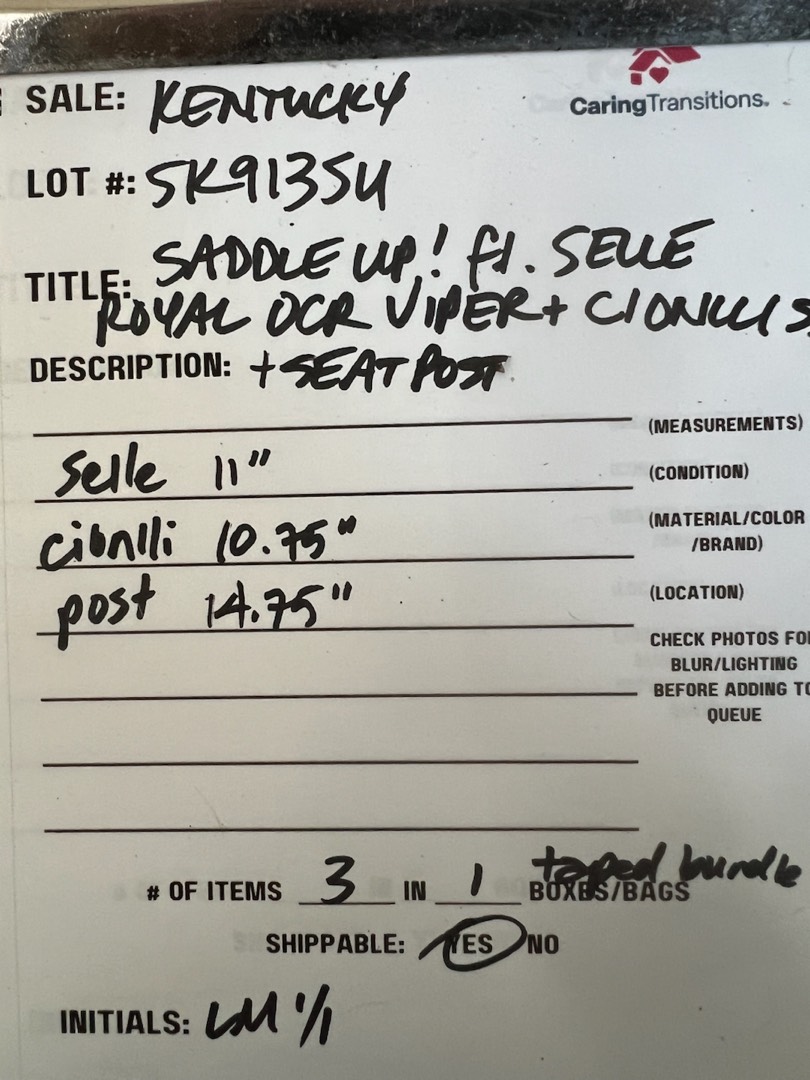 SALE: KENTUCKY
CaringTransitions.
LOT #: SK9135U
TITLE: SADDLE UP! ft. SELLE
ROYAL OCR VIPER + CIONLLI S
DESCRIPTION: + SEAT POST
(MEASUREMENTS)
Selle 11"
(CONDITION)
cionlli 10.75"
(MATERIAL/COLOR
/BRAND)
post 14.75"
(LOCATION)
CHECK PHOTOS FO
BLUR/LIGHTING
BEFORE ADDING TO
QUEUE
taped bundle
# OF ITEMS 3 IN 1 BOXES/BAGS
SHIPPABLE: YES NO
INITIALS: LM 1/1